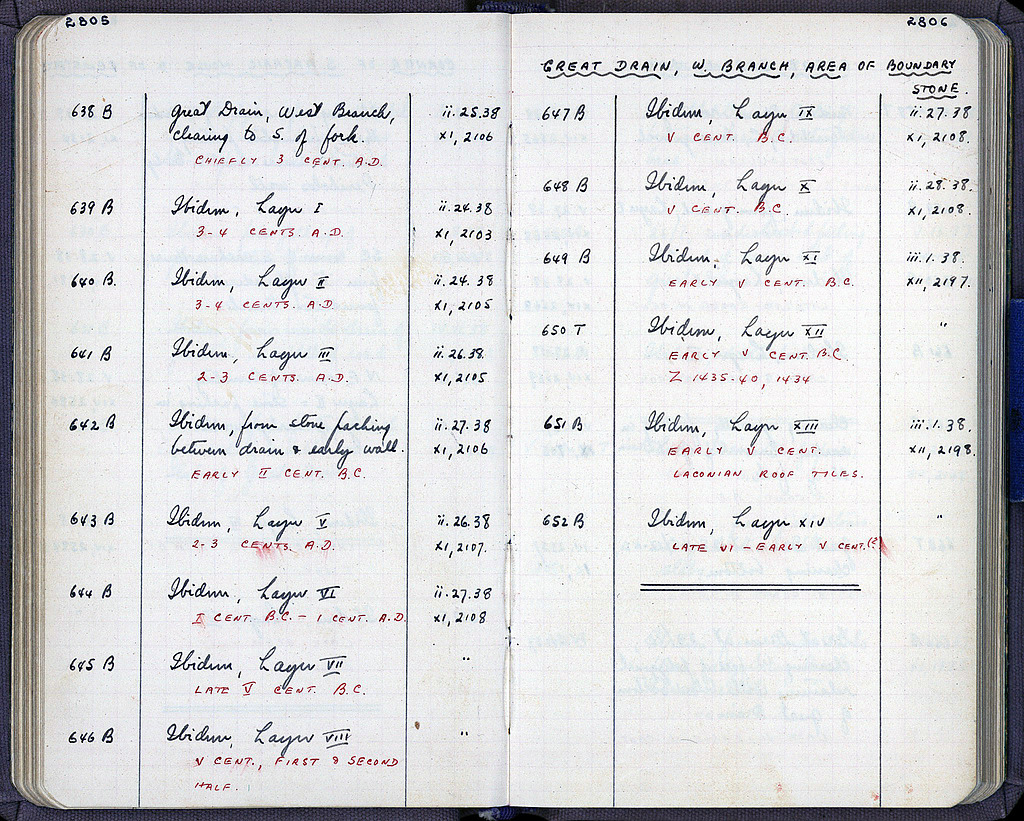 2805
638 B Great Drain, West Branch, ii.25.38
clearing to S. of fork. XI, 2106
CHIEFLY 3 CENT. A.D.
639 B Ibidem, Layer I ii.24.38
3-4 CENTS. A.D. XI, 2103
640 B. Ibidem, Layer II ii.24.38
3-4 CENTS. A.D. XI, 2105
641 B Ibidem, Layer III ii.26.38
2-3 CENTS. A.D. XI, 2105
642 B Ibidem, from stone packing ii.27.38
between drain & early wall. XI, 2106
EARLY II CENT. B.C.
643 B Ibidem, Layer V ii.26.38
2-3 CENTS. A.D. XI, 2107.
644 B Ibidem, Layer VI ii.27.38
I CENT. B.C. - 1 CENT. A.D. XI, 2108
645 B Ibidem, Layer VII "
LATE V CENT. B.C.
646 B Ibidem, Layer VIII "
V CENT., FIRST & SECOND
HALF.
2806
GREAT DRAIN, W. BRANCH, AREA OF BOUNDARY
STONE.
647 B Ibidem, Layer IX ii.27.38
V CENT. B.C. XI, 2108.
648 B Ibidem, Layer X ii.28.38.
V CENT. B.C. XI, 2108.
649 B Ibidem, Layer XI iii.1.38.
EARLY V CENT. B.C. XII, 2197.
650 T Ibidem, Layer XII "
EARLY V CENT. B.C
Z 1435-40, 1434
651 B Ibidem, Layer XIII iii.1.38.
EARLY V CENT. XII, 2198.
LACONIAN ROOF TILES.
652 B Ibidem, Layer XIV "
LATE VI - EARLY V CENT.(?)